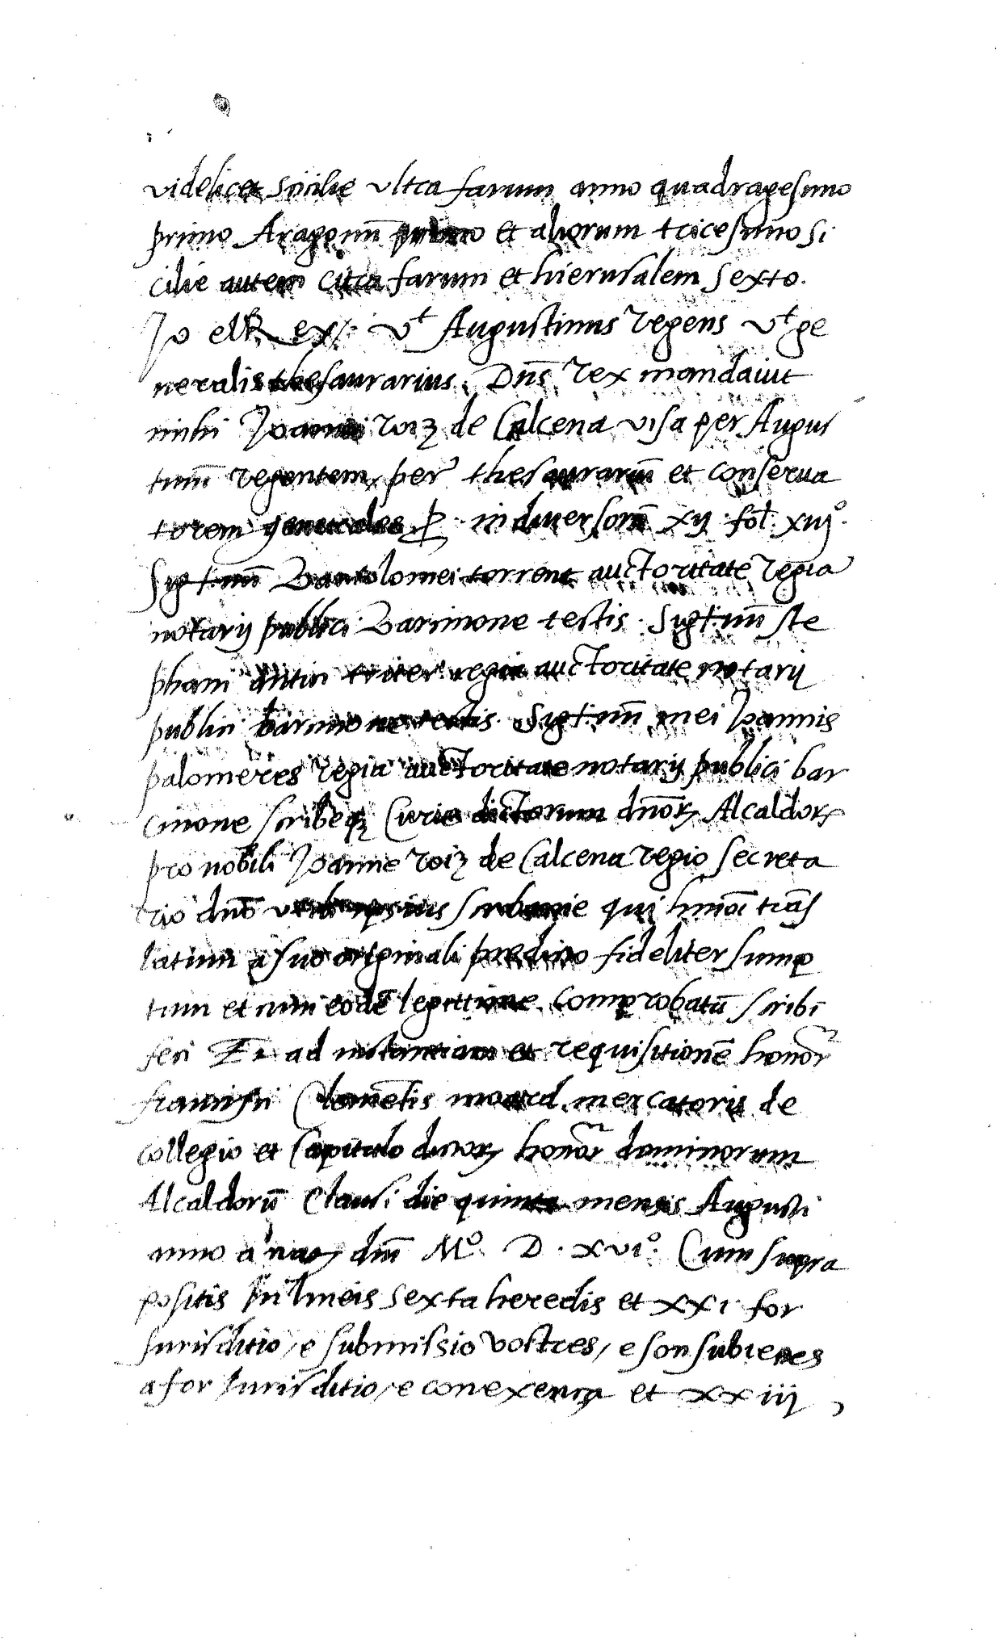 videlicet sicilie vltra farum anno quadragesimo
primo Aragonũ primo et aliorum tricesimo si
cilie autem citra farum et hierusalem sexto.
Jo el Rex /. vt Augustinus regens vt ge
neralis thesaurarius. Dñs rex mandauit
mihi Joanni roiz de Calcena visa per Augus
tinũ regentem per thesaurariũ et conserua
torem generales P. in diuersorũ xij. fol. xiijº.
Sig†num Bartolomei torrent auctoritate regia
notarij publici Barcinone testis. Sig†num ste
phani auctoritate notarij
publici barcinone testis. Sig†num mei Joannis
palomeres regia auctoritate notarij publici bar
cinone scribeqȝ Curie dictorum dñoꝝ Alcaldoꝝ
pro nobili Joanne roiz de Calcena regio secreta
rio dño vtili ipsius scribanie qui hmõi trãs
latum a suo originali predicto fideliter sump
tum et cum eodẽ legittime comprobatũ scribi
feci Et ad instantiam et requisitionẽ honor
francisci mercatoris de
collegio et Capitulo dictoꝝ honor dominorum
Alcaldorũ Clausi die quinta mensis Augusti
anno a natᵉ dñi Mº. D. xviº. Cum supra
positis in lineis sexta heredis et xxi. for
Jurisditio / e submissio vostres / e son subieres
a for Jurisditio / e conexença et xxiij